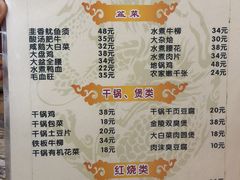 盆菜
韭香鱿鱼须 48元
酸汤肥牛 35元
咸鹅大白菜 32元
大盘鸡 38元
大盆全腰 38元
水煮鸭血 22元
毛血旺 35元
水煮牛柳 34元
大杂烩 30元
水煮腰花 38元
水煮肉片 34元
地锅鸡 48元
农家嫩千张 20元
干锅、煲类
干锅鸡 38元
干锅包菜 18元
干锅土豆片 20元
铁板牛柳 34元
干锅有机花菜 18元
干锅千页豆腐 20元
金陵双臭煲 38元
大白菜肉圆煲 18元
肉沫臭豆腐 18元
红烧类